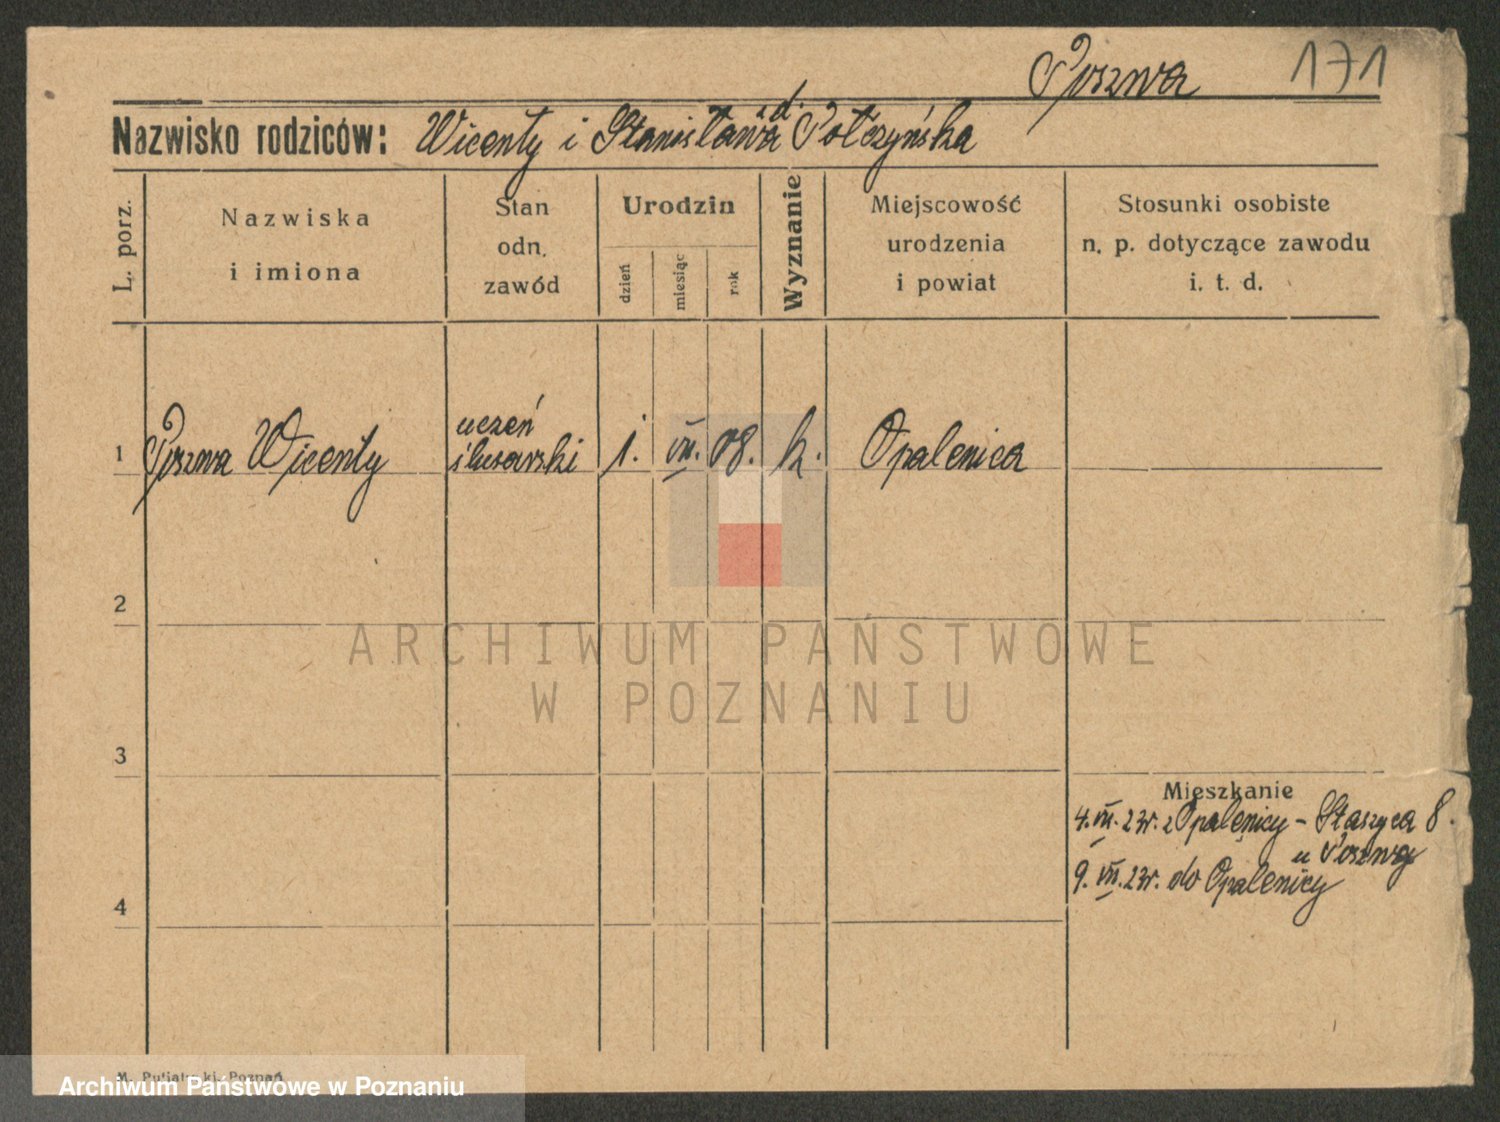 Poszwa 171
Nazwisko rodziców: Wicenty i Stanisława z d. Połczyńska
L. porz.
Nazwiska
i imiona
Stan
odn.
zawód
Urodzin
dzień
miesiąc
rok
Wyznanie
Miejscowość
urodzenia
i powiat
Stosunki osobiste
n. p. dotyczące zawodu
i. t. d.
1 Poszwa Wicenty uczeń
ślusarski 1. VII. 08. k. Opalenica
2
3
4
Mieszkanie
4. VII. 23r. z Opalenicy - Staszyca 8.
u Poszwy
9. VII. 23r. do Opalenicy
ARCHIWUM PAŃSTWOWE
W POZNANIU
M. Putiatycki, Poznań
Archiwum Państwowe w Poznaniu